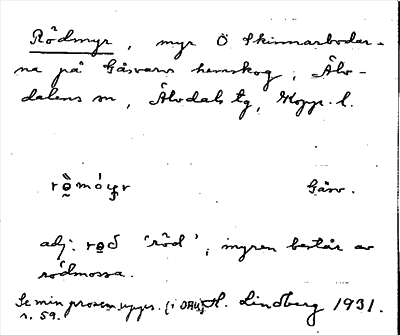 Rödmyr, myr Ö Skinnarbodar-
na på Gåsvarv hemskog, Älv-
dalens sn, Älvdals tg, Kopp. l.
Gåsv.
adj. 'röd'; myren består av
rödmossa.
Se min prosem.upps. (i OAU)
s. 59.
H. Lindberg 1931.